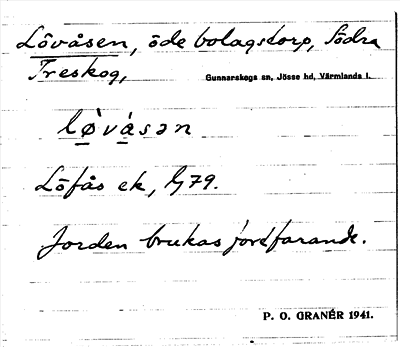 Lövåsen, öde bolagstorp, Södra
Treskog,
Gunnarskogs sn, Jösse hd, Värmlands l.
lø̀vàsən
Löfås ek, G79.
Jorden brukas fortfarande.
P. O. GRANÉR 1941.